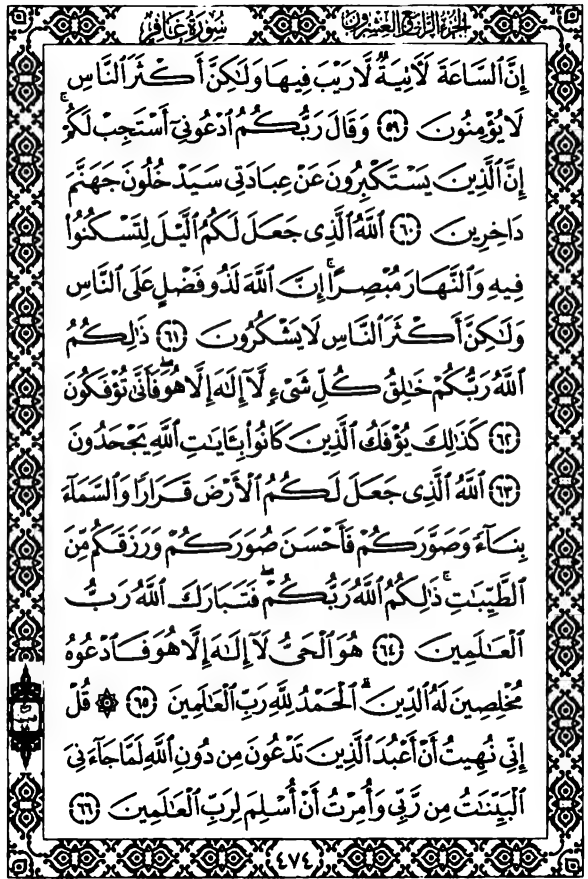 الجزء الرابع والعشرون سورة غافر
إِنَّ السَّاعَةَ لَآتِيَةٌ لَّا رَيْبَ فِيهَا وَلَٰكِنَّ أَكْثَرَ النَّاسِ
لَا يُؤْمِنُونَ ﴿٥٩﴾ وَقَالَ رَبُّكُمُ ادْعُونِي أَسْتَجِبْ لَكُمْ ۚ
إِنَّ الَّذِينَ يَسْتَكْبِرُونَ عَنْ عِبَادَتِي سَيَدْخُلُونَ جَهَنَّمَ
دَاخِرِينَ ﴿٦٠﴾ اللَّهُ الَّذِي جَعَلَ لَكُمُ اللَّيْلَ لِتَسْكُنُوا
فِيهِ وَالنَّهَارَ مُبْصِرًا ۚ إِنَّ اللَّهَ لَذُو فَضْلٍ عَلَى النَّاسِ
وَلَٰكِنَّ أَكْثَرَ النَّاسِ لَا يَشْكُرُونَ ﴿٦١﴾ ذَٰلِكُمُ
اللَّهُ رَبُّكُمْ خَالِقُ كُلِّ شَيْءٍ لَّا إِلَٰهَ إِلَّا هُوَ ۖ فَأَنَّىٰ تُؤْفَكُونَ
﴿٦٢﴾ كَذَٰلِكَ يُؤْفَكُ الَّذِينَ كَانُوا بِآيَاتِ اللَّهِ يَجْحَدُونَ
﴿٦٣﴾ اللَّهُ الَّذِي جَعَلَ لَكُمُ الْأَرْضَ قَرَارًا وَالسَّمَاءَ
بِنَاءً وَصَوَّرَكُمْ فَأَحْسَنَ صُوَرَكُمْ وَرَزَقَكُم مِّنَ
الطَّيِّبَاتِ ۚ ذَٰلِكُمُ اللَّهُ رَبُّكُمْ ۖ فَتَبَارَكَ اللَّهُ رَبُّ
الْعَالَمِينَ ﴿٦٤﴾ هُوَ الْحَيُّ لَا إِلَٰهَ إِلَّا هُوَ فَادْعُوهُ
مُخْلِصِينَ لَهُ الدِّينَ ۗ الْحَمْدُ لِلَّهِ رَبِّ الْعَالَمِينَ ﴿٦٥﴾ ۞ قُلْ
إِنِّي نُهِيتُ أَنْ أَعْبُدَ الَّذِينَ تَدْعُونَ مِن دُونِ اللَّهِ لَمَّا جَاءَنِيَ
الْبَيِّنَاتُ مِن رَّبِّي وَأُمِرْتُ أَنْ أُسْلِمَ لِرَبِّ الْعَالَمِينَ ﴿٦٦﴾
٤٧٤